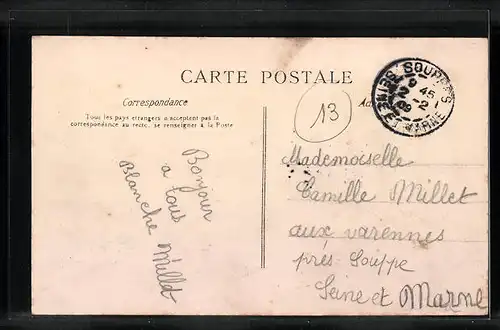 CARTE POSTALE
Correspondance
Tous les pays étrangers n'acceptent pas la
correspondance au recto, se renseigner à la Poste
Bonjour
a tous
Blanche Millet
13
Mademoiselle
Camille Millet
aux varennes
près Souppe
Seine et Marne
SOUPPES
9 45
-2
SEINE ET MARNE